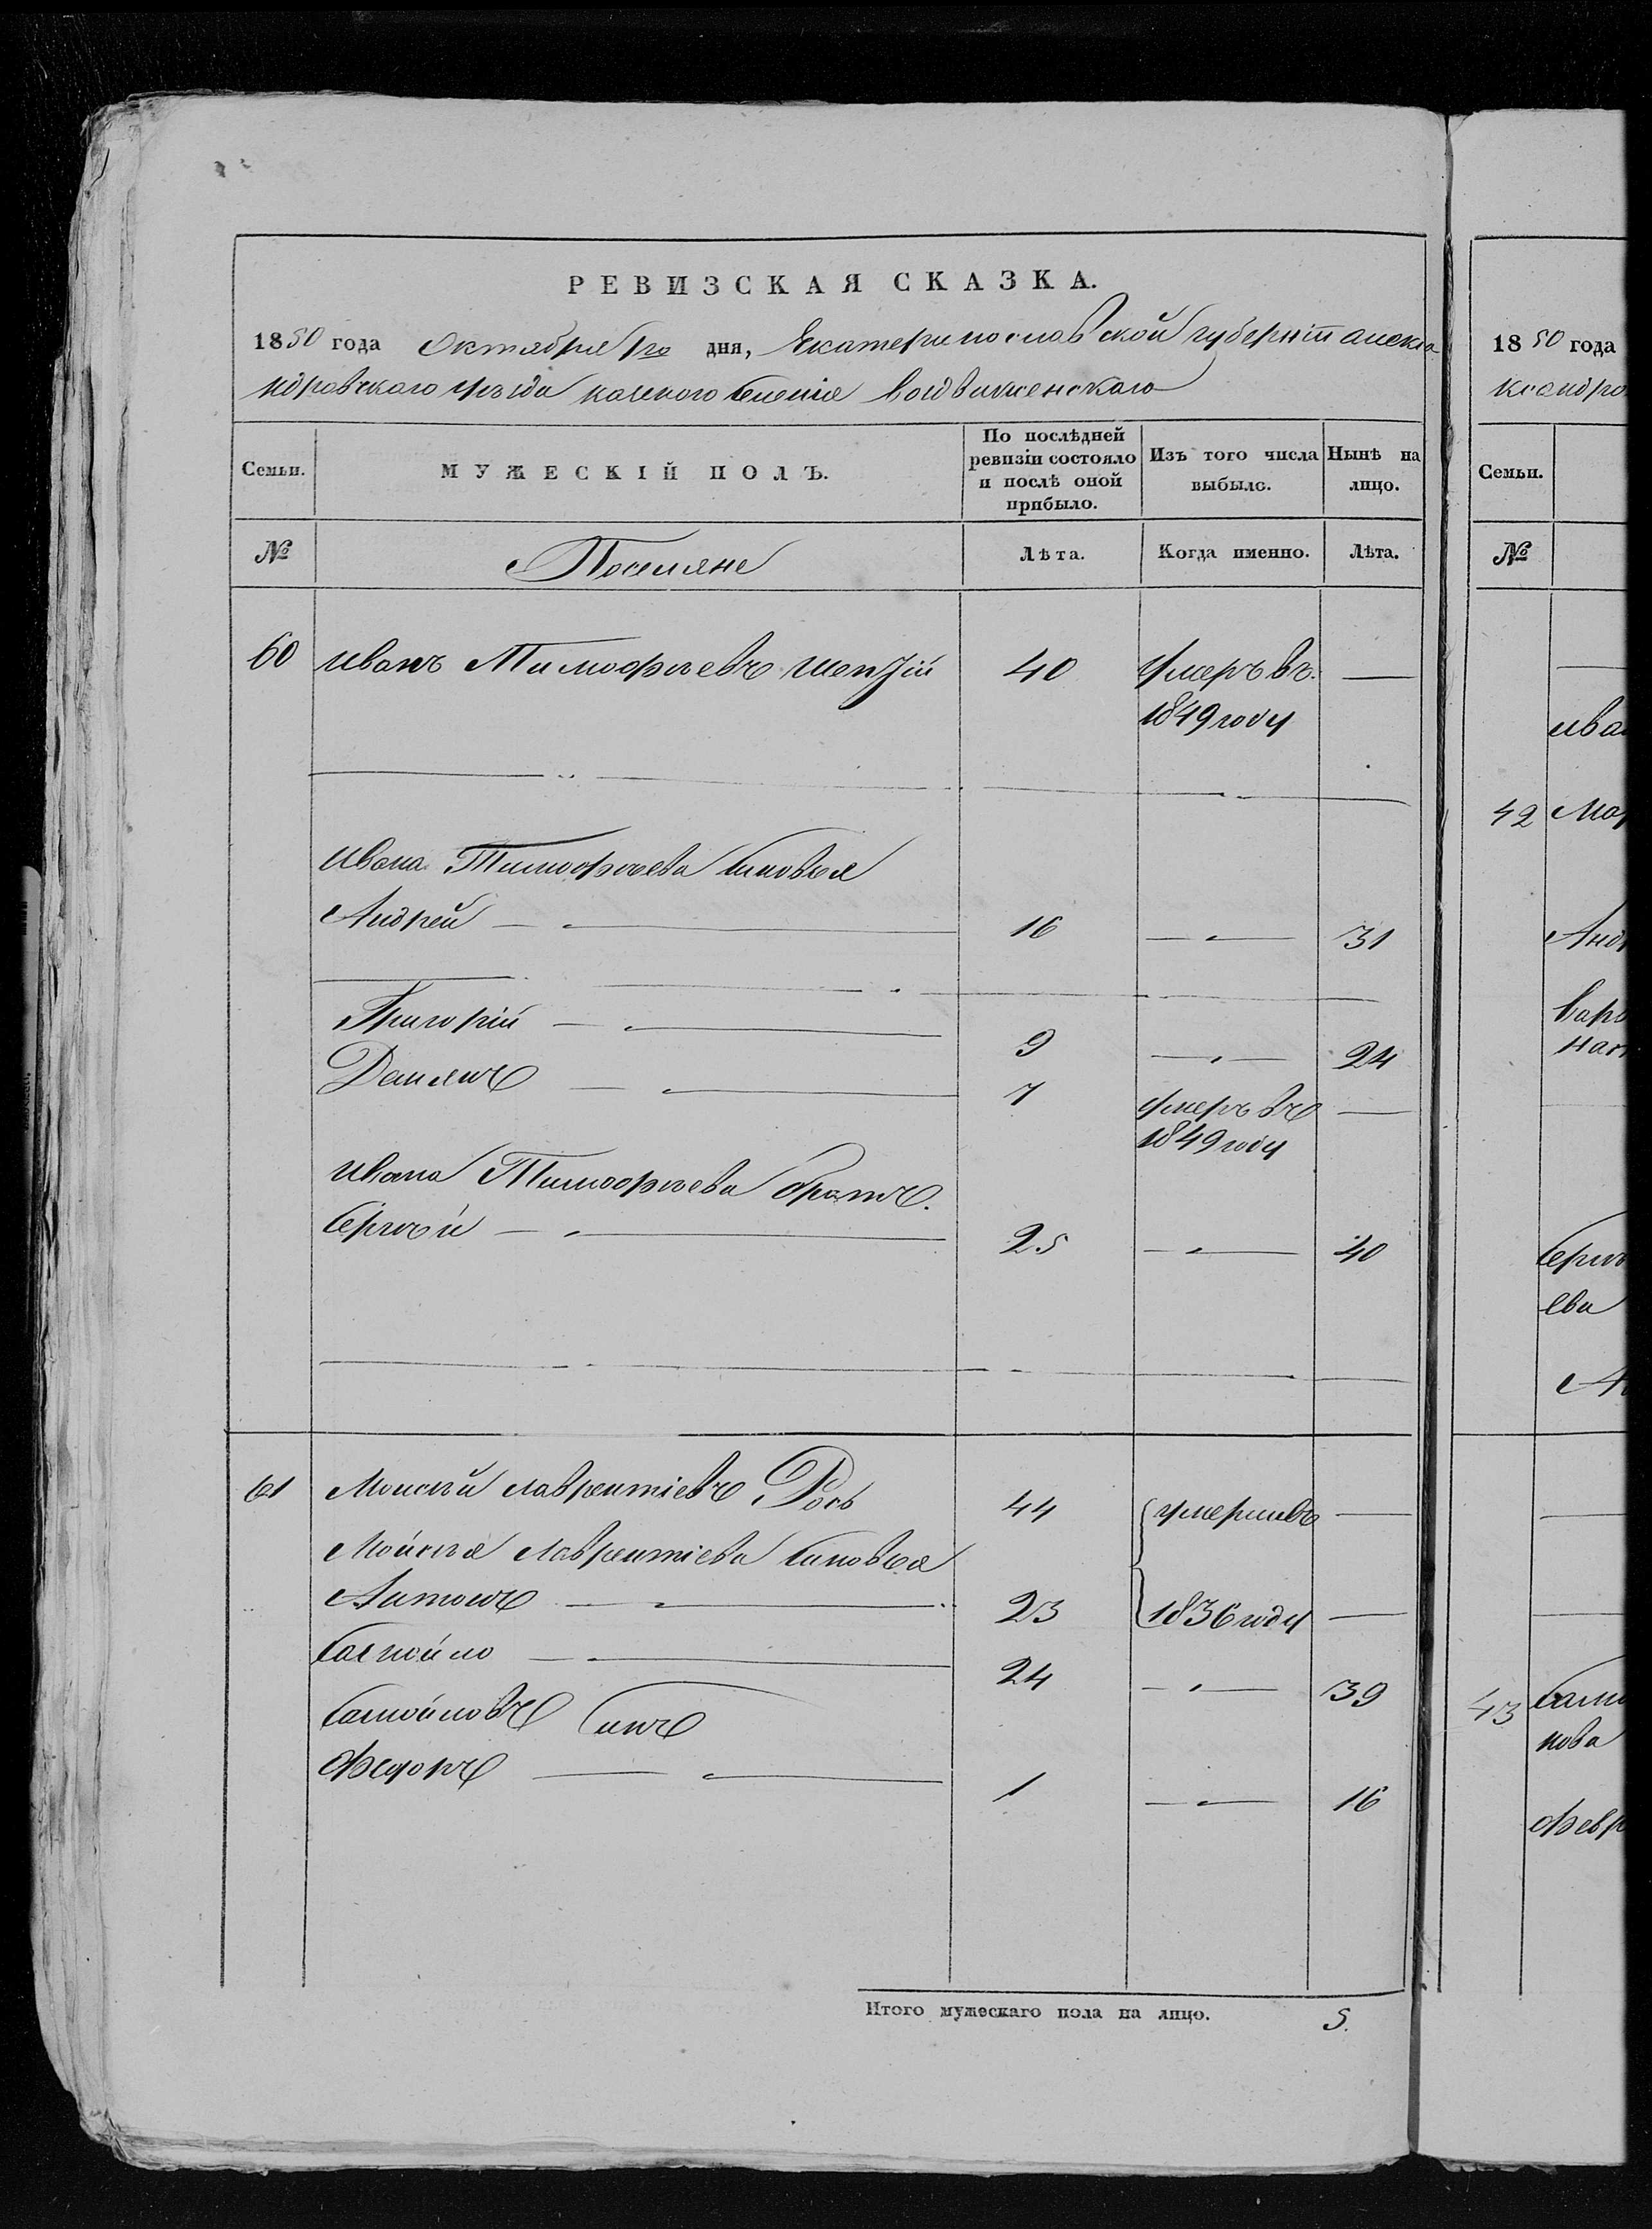 РЕВИЗСКАЯ СКАЗКА.
1850 года Октября 1го дня, Екатеринославской губерніи Алекса
ндровского уѣзда казенного селенія Воздвиженского
Семьи. МУЖЕСКІЙ ПОЛЪ. По послѣдней ревизіи состояло и послѣ оной прибыло. Изъ того числа выбыло. Нынѣ на лицо.
№ Поселяне Лѣта. Когда именно. Лѣта.
60 Иванъ Тимофѣевъ 40 умеръ въ —
1849 году
Ивана Тимофѣева сыновья
Андрей — 16 — 31
Григорій — 9 — 24
Демянъ — 7 умеръ въ —
1849 году
Ивана Тимофѣева братъ.
Сергѣй — 25 — 40
61 Моисѣй Лаврентіевъ Рось 44 умершıе въ —
Мойсѣя Лаврентіева сыновья
Антонъ — 23 1836 году —
Самойло — 24 — 39
Самойловъ сынъ
Федоръ — 1 — 16
Итого мужескаго пола на лицо. 5.
1850 года
ксандро
Семьи.
№
Ива
42 Мар
Анд
Варв
Нат
Сергѣ
ева
А
43 Само
лова
Февр